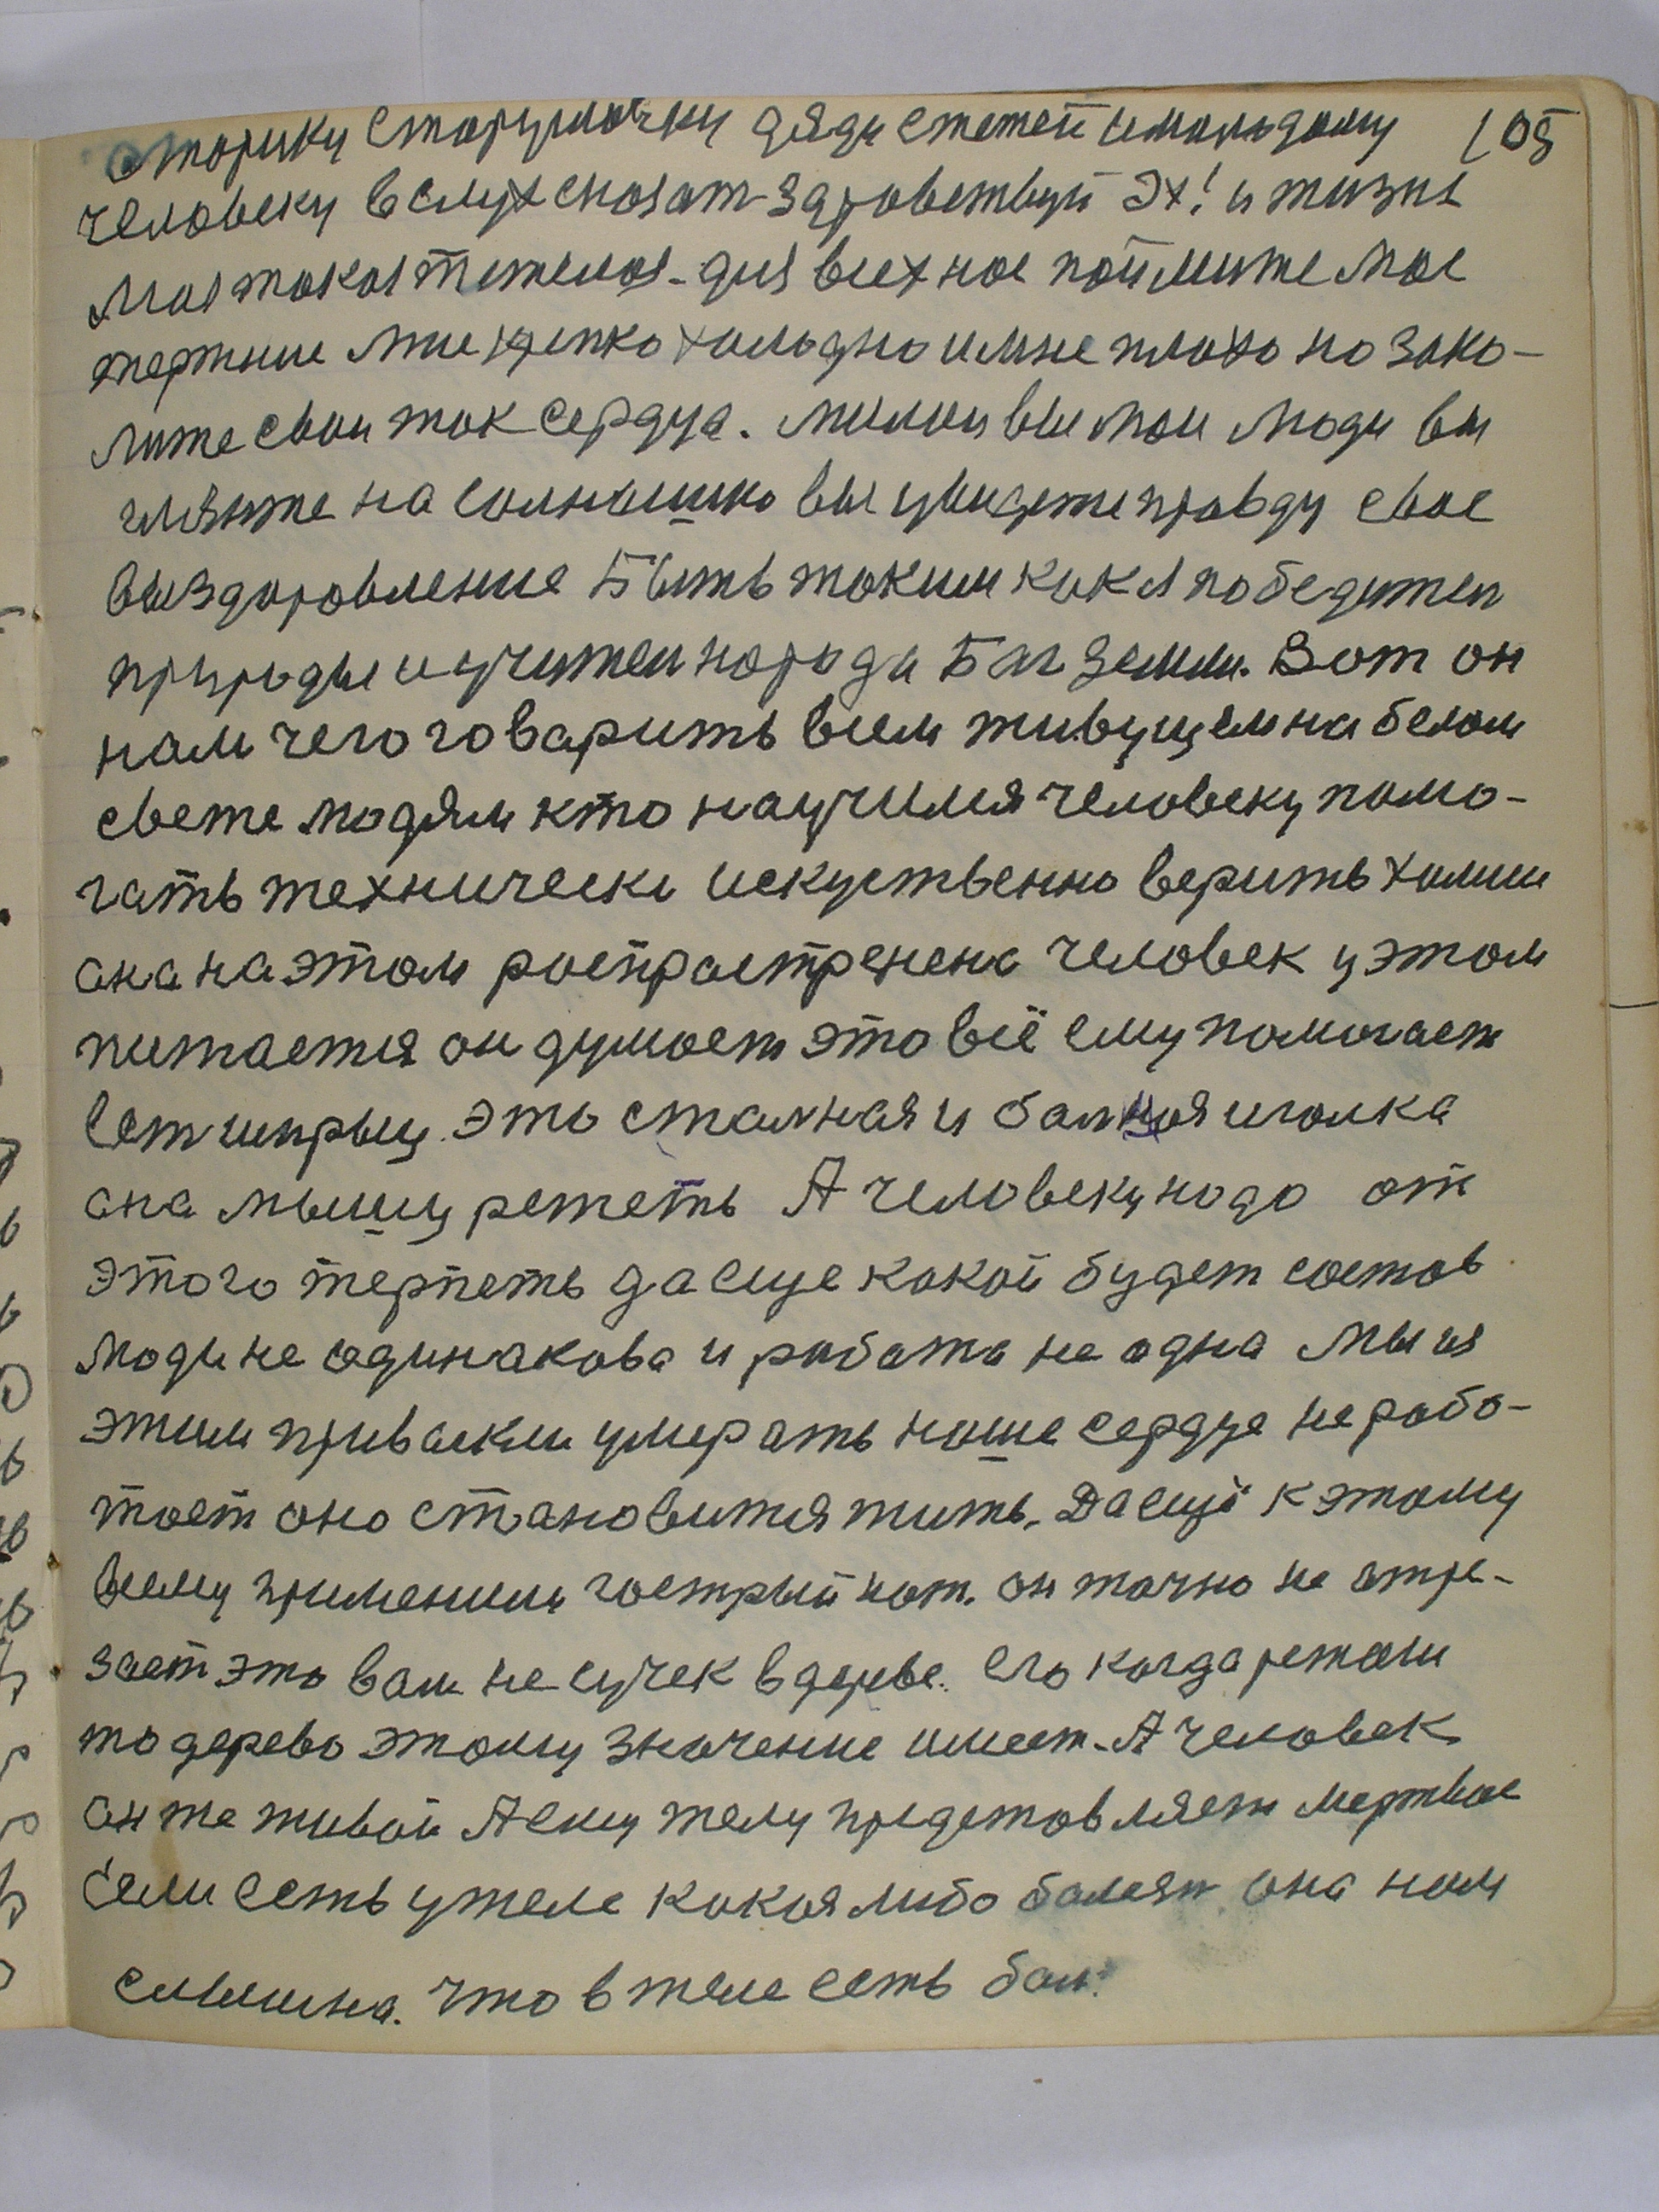 старику старушачки дяди стетей и маладому 105
человеку вслух сказат здраветвуй Эх! и жизнь
мая такая тежелая. для всех нас поймите мае
терпние мне крепко холодно и мне плохо но зака-
лите свои так сердца. милаи вы маи люди вы
гляните на солнышко вы увидете правду свае
выздаровление Быть таким как я победител
природы и учител народа Бог земли. Вот он
нам чего говарить всем живущем на белом
свете людям кто научился человеку помо-
гать технически искуственно верить химии
она на этом роспрастренена человек у этом
питается он думает это всё ему помогает
ест шприц. это сталная и балная иголка
она мышцу режеть А человеку надо от
этого терпеть да еще какой будет состав
люди не одинакова и работа не одна мы из
этим привыкли умерать наше сердце не рабо-
тает оно становится жить. Да ещё к этому
всему применили гострый нож. он точно не атре-
зает это вам не сучек в дереве. его когда режали
то дерево этому значение имеет. А человек
он же живой А ему телу представляем мертвое
Если есть у теле какая либо балезн она нам
слышна. что в теле есть бол.